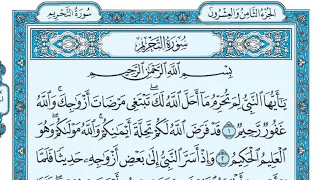 الجُزْءُ الثَّامِنُ وَالْعِشْرُونَ
سُورَةُ التَّحْرِيمِ
سُورَةُ التَّحْرِيمِ
بِسْمِ اللَّهِ الرَّحْمَٰنِ الرَّحِيمِ
يَٰٓأَيُّهَا ٱلنَّبِيُّ لِمَ تُحَرِّمُ مَآ أَحَلَّ ٱللَّهُ لَكَ ۖ تَبْتَغِي مَرْضَاتَ أَزْوَٰجِكَ ۚ وَٱللَّهُ
غَفُورٌ رَّحِيمٌ ١ قَدْ فَرَضَ ٱللَّهُ لَكُمْ تَحِلَّةَ أَيْمَٰنِكُمْ ۚ وَٱللَّهُ مَوْلَىٰكُمْ ۖ وَهُوَ
ٱلْعَلِيمُ ٱلْحَكِيمُ ٢ وَإِذْ أَسَرَّ ٱلنَّبِيُّ إِلَىٰ بَعْضِ أَزْوَٰجِهِۦ حَدِيثًا فَلَمَّا